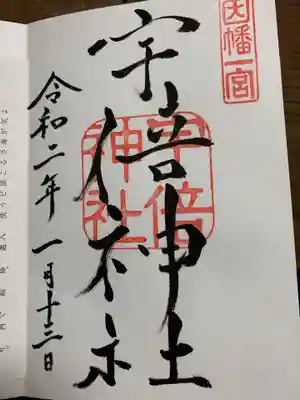 因幡一宮
宇倍神社
宇倍
神社
令和二年一月十三日